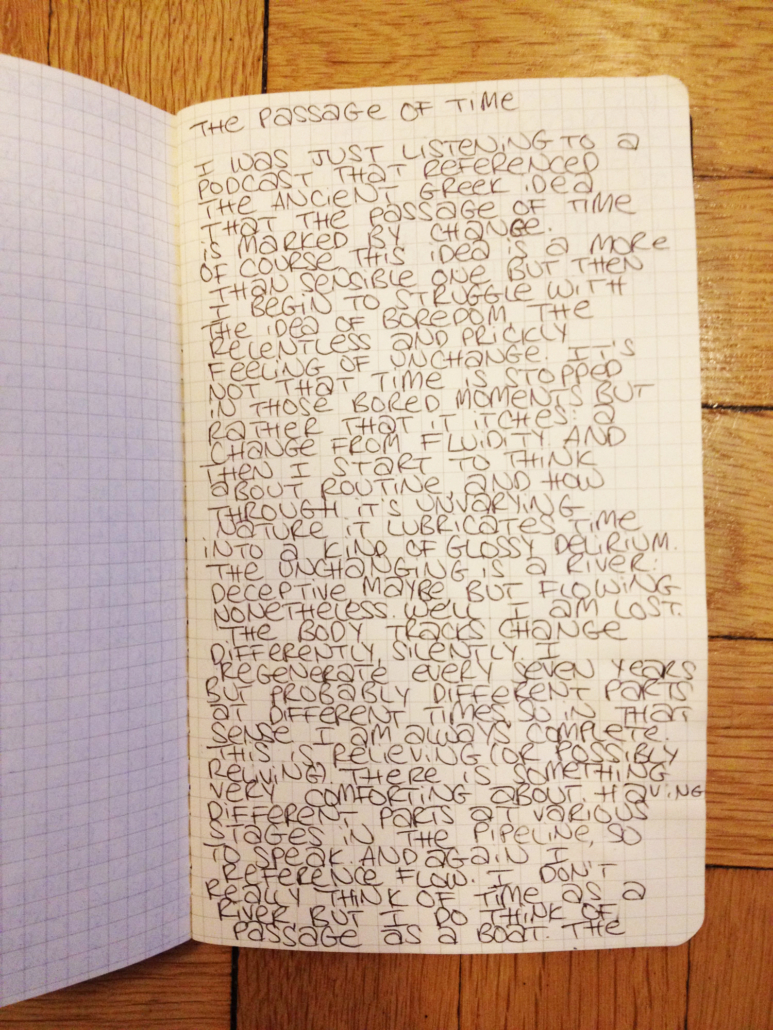 THE PASSAGE OF TIME
I WAS JUST LISTENING TO A
PODCAST THAT REFERENCED
THE ANCIENT GREEK IDEA
THAT THE PASSAGE OF TIME
IS MARKED BY CHANGE.
OF COURSE THIS IDEA IS A MORE
THAN SENSIBLE ONE BUT THEN
I BEGIN TO STRUGGLE WITH
THE IDEA OF BOREDOM, THE
RELENTLESS AND PRICKLY
FEELING OF UNCHANGE. IT'S
NOT THAT TIME IS STOPPED
IN THOSE BORED MOMENTS BUT
RATHER THAT IT ITCHES: A
CHANGE FROM FLUIDITY. AND
THEN I START TO THINK
ABOUT ROUTINE AND HOW
THROUGH IT'S UNVARYING
NATURE IT LUBRICATES TIME
INTO A KIND OF GLOSSY DELIRIUM.
THE UNCHANGING IS A RIVER:
DECEPTIVE MAYBE BUT FLOWING
NONETHELESS. WELL I AM LOST.
THE BODY TRACKS CHANGE
DIFFERENTLY, SILENTLY. I
REGENERATE EVERY SEVEN YEARS
BUT PROBABLY DIFFERENT PARTS
AT DIFFERENT TIMES SO IN THAT
SENSE I AM ALWAYS COMPLETE.
THIS IS RELIEVING (OR POSSIBLY
RELIVING). THERE IS SOMETHING
VERY COMFORTING ABOUT HAVING
DIFFERENT PARTS AT VARIOUS
STAGES IN THE PIPELINE, SO
TO SPEAK. AND AGAIN I
REFERENCE FLOW. I DON'T
REALLY THINK OF TIME AS A
RIVER BUT I DO THINK OF
PASSAGE AS A BOAT. THE